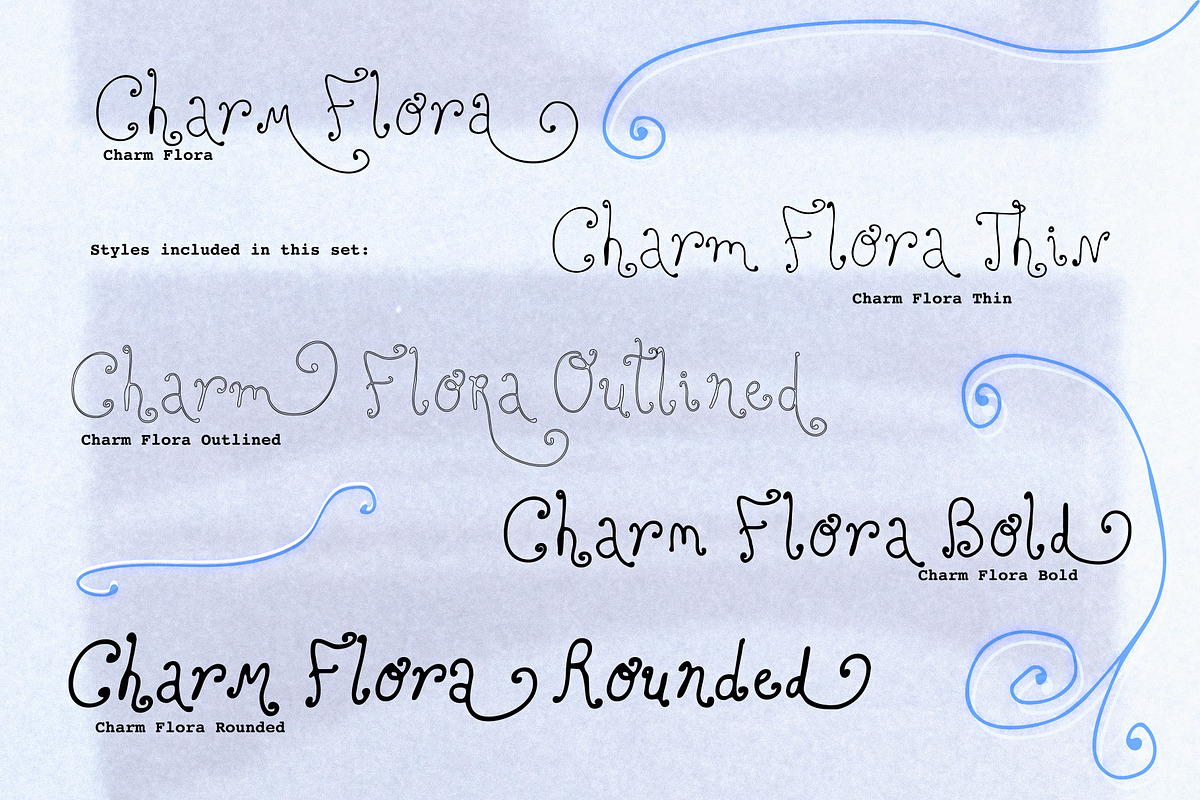 Charm Flora
Charm Flora
Styles included in this set:
Charm Flora Thin
Charm Flora Thin
Charm Flora Outlined
Charm Flora Outlined
Charm Flora Bold
Charm Flora Bold
Charm Flora Rounded
Charm Flora Rounded